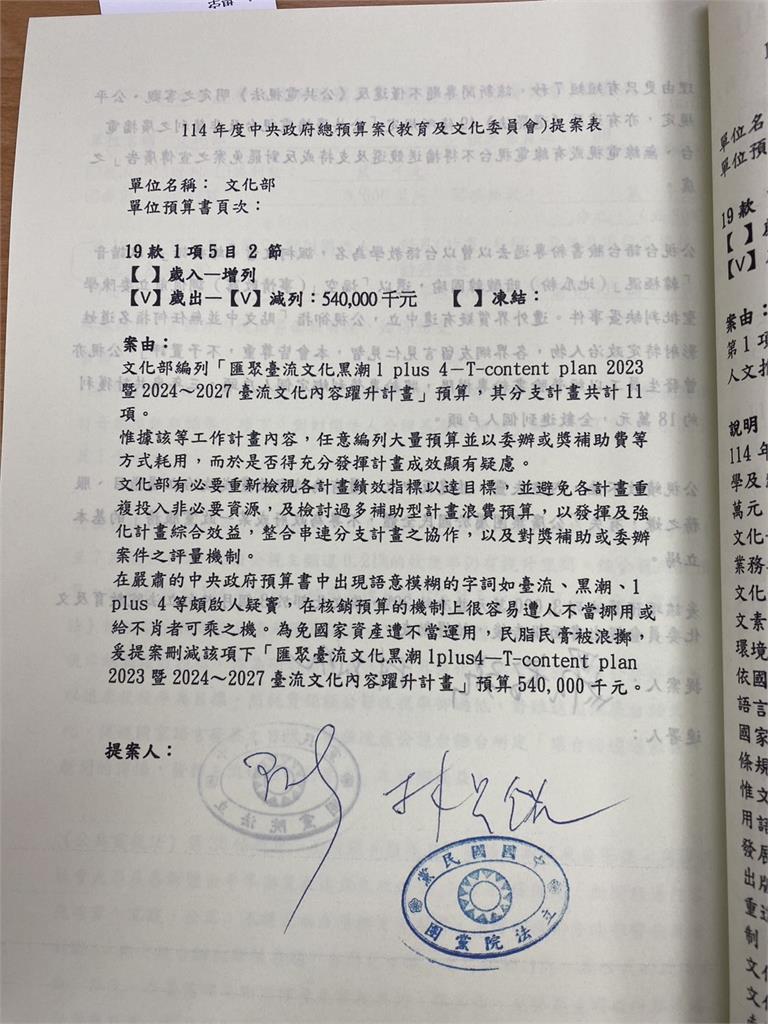 114 年度中央政府總預算案(教育及文化委員會)提案表
單位名稱： 文化部
單位預算書頁次：
19 款 1 項 5 目 2 節
【 】歲入—增列
【V】歲出—【V】減列：540,000 千元 【 】凍結：
案由：
文化部編列「匯聚臺流文化黑潮 1 plus 4—T-content plan 2023
暨 2024～2027 臺流文化內容躍升計畫」預算，其分支計畫共計 11
項。
惟據該等工作計畫內容，任意編列大量預算並以委辦或獎補助費等
方式耗用，而於是否得充分發揮計畫成效顯有疑慮。
文化部有必要重新檢視各計畫績效指標以達目標，並避免各計畫重
複投入非必要資源，及檢討過多補助型計畫浪費預算，以發揮及強
化計畫綜合效益，整合串連分支計畫之協作，以及對獎補助或委辦
案件之評量機制。
在嚴肅的中央政府預算書中出現語意模糊的字詞如臺流、黑潮、1
plus 4 等頗啟人疑竇，在核銷預算的機制上很容易遭人不當挪用或
給不肖者可乘之機。為免國家資產遭不當運用，民脂民膏被浪擲，
爰提案刪減該項下「匯聚臺流文化黑潮 1plus4—T-content plan
2023 暨 2024～2027 臺流文化內容躍升計畫」預算 540,000 千元。
提案人：
中國國民黨
立法院黨團
單位名
單位預
19 款
【 】歲
【V】歲
案由：
第 1 項
人文推
說明
114 年
學及
萬元
文化
業務
文化
文素
環境
依國
語言
國家
條規
惟文
用語
發展
出版
重這
制
文化
文化